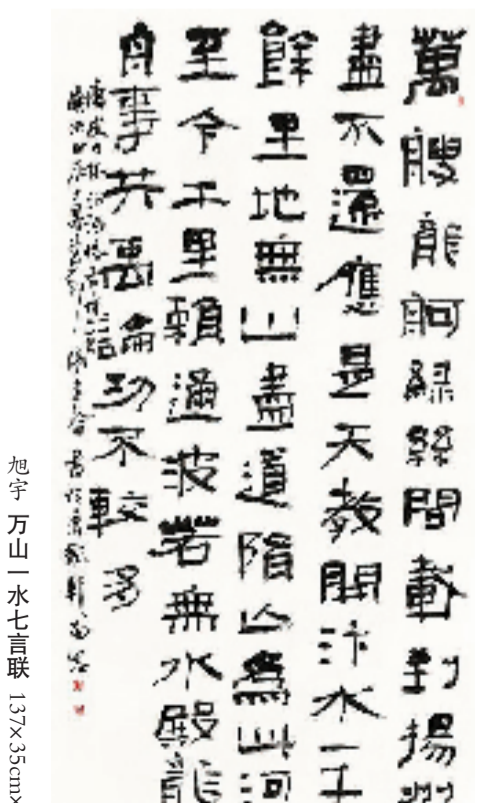 萬艘龍舸綠絲間載到揚州
盡不還應是天教開汴水一千
餘里地無山盡道隋亡為此河
至今千里賴通波若無水殿龍
舟事共禹論功不較多
唐皮日休
旭宇 万山一水七言联 137×35cm×